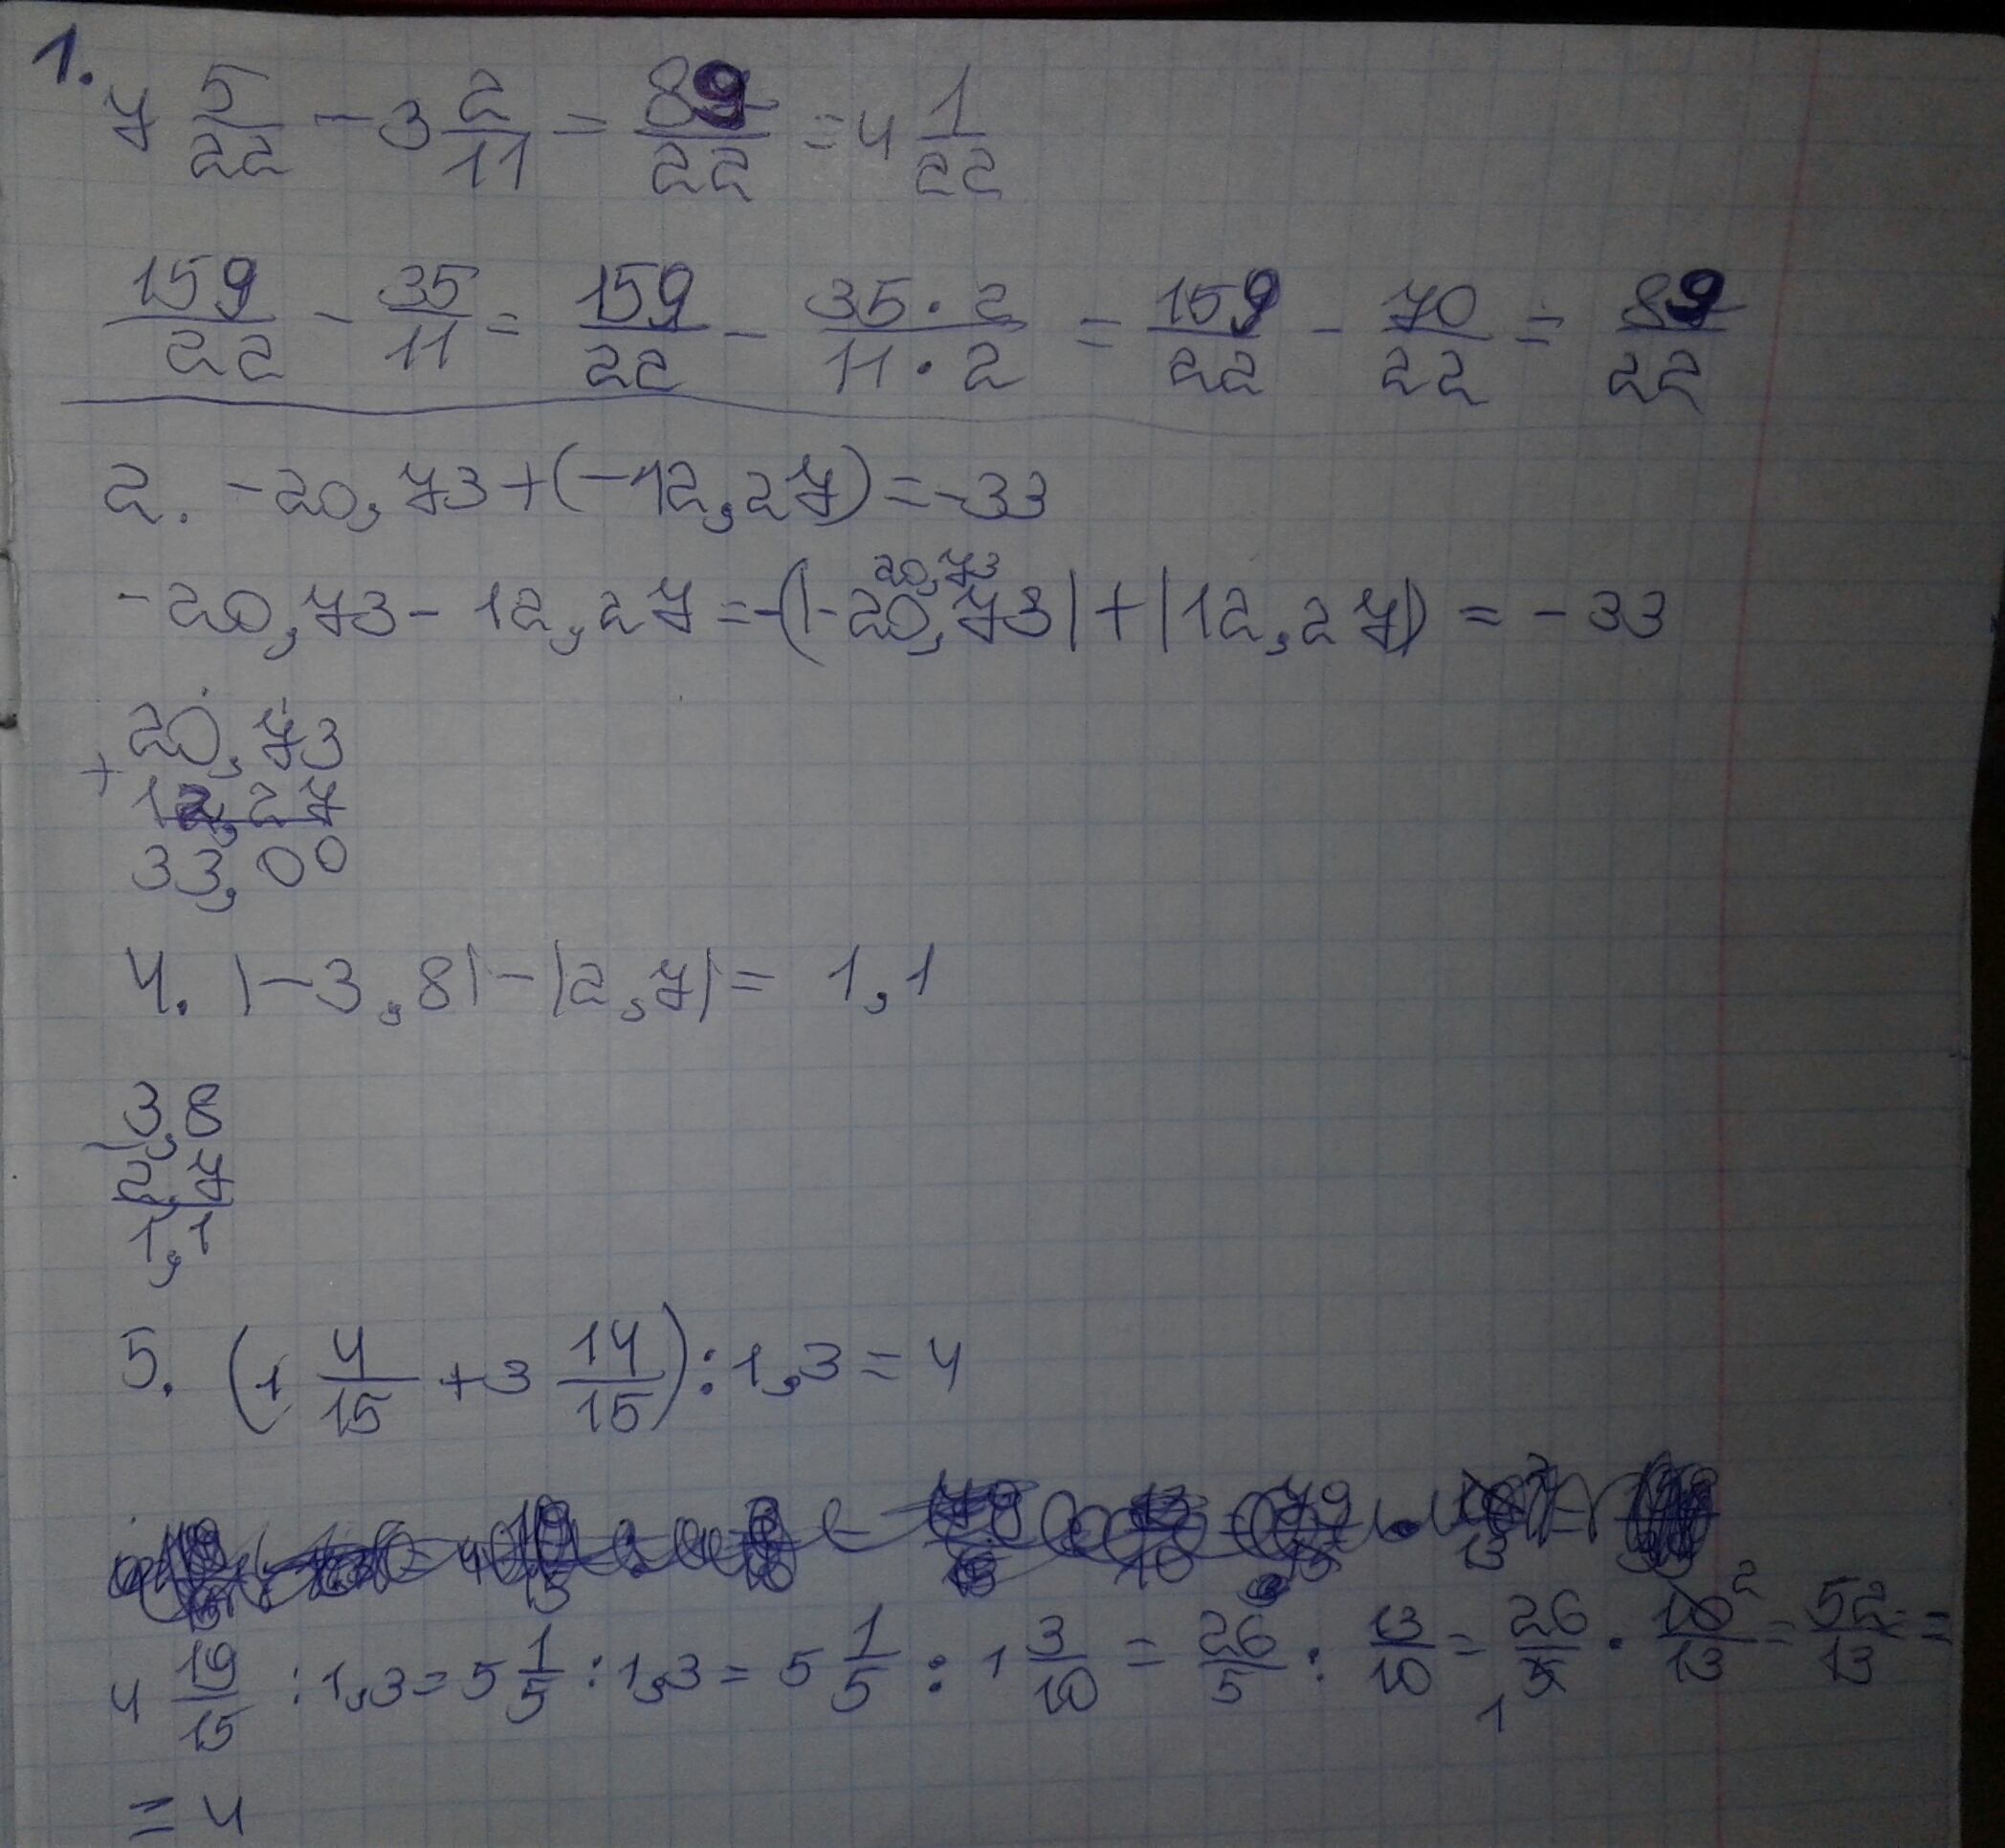 1.
7 5/22 - 3 2/11 = 89/22 = 4 1/22
159/22 - 35/11 = 159/22 - 35·2/11·2 = 159/22 - 70/22 = 89/22
2. -20,73+(-12,27)=-33
20,73
-20,73-12,27=-(|-20,73|+|12,27|)=-33
20,73
+
12,27
33,00
4. |-3,8|-|2,7|= 1,1
3,8
-
2,7
1,1
5. (1 4/15 + 3 14/15):1,3=4
4 19/15 :1,3= 5 1/5 :1,3= 5 1/5 : 1 3/10 = 26/5 : 13/10 = 26/5 1 · 10 2/13 = 52/13 =
= 4